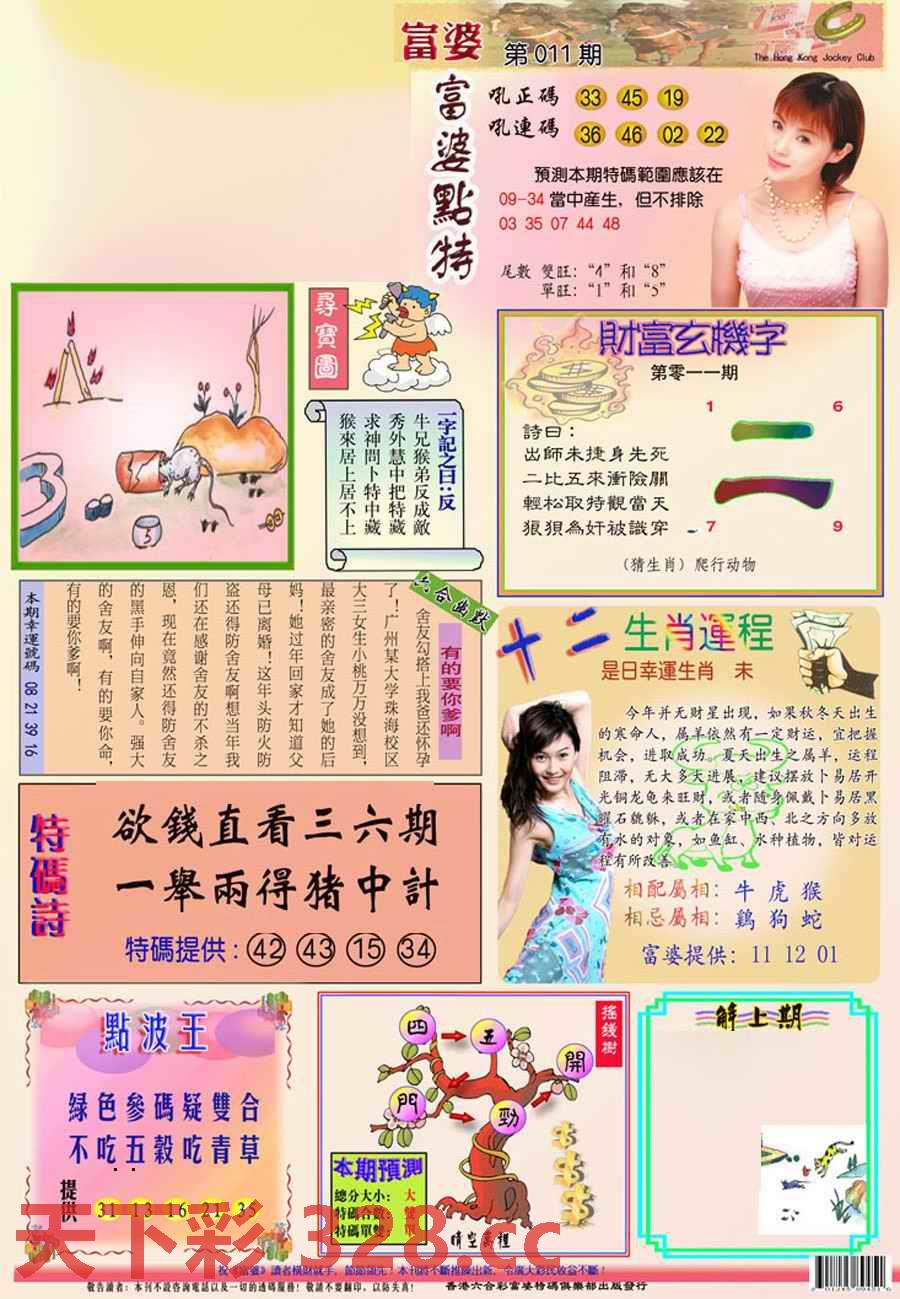 富婆 第011期
The Hong Kong Jockey Club
富婆點特
吼正碼 33 45 19
吼連碼 36 46 02 22
預測本期特碼範圍應該在
09-34 當中産生，但不排除
03 35 07 44 48
尾數 雙旺：“4”和“8”
單旺：“1”和“5”
尋寶圖
5
一字記之日：反
牛兄猴弟反成敵
秀外慧中把特藏
求神問卜特中藏
猴來居上居不上
財富玄機字
第零一一期
1 6
二
7 9
詩曰：
出師未捷身先死
二比五來衝險關
輕松取特觀當天
狼狽為奸被識穿
（猜生肖）爬行动物
六合幽默
有的要你爹啊
舍友勾搭上我爸还怀孕
了！广州某大学珠海校区
大三女生小桃万万没想到，
最亲密的舍友成了她的后
妈！她过年回家才知道父
母已离婚！这年头防火防
盗还得防舍友啊想当年我
们还在感谢舍友的不杀之
恩，现在竟然还得防舍友
的黑手伸向自家人。强大
的舍友啊，有的要你命，
有的要你爹啊！
本期幸運號碼 08 21 39 16
十二生肖運程
是日幸運生肖 未
今年并无财星出现，如果秋冬天出生
的寒命人，属羊依然有一定财运，宜把握
机会，进取成功。夏天出生之属羊，运程
阻滞，无大多大进展，建议摆放卜易居开
光铜龙龟来旺财，或者随身佩戴卜易居黑
曜石貔貅，或者在家中西、北之方向多放
有水的对象，如鱼缸、水种植物，皆对运
程有所改善
相配屬相：牛 虎 猴
相忌屬相：鷄 狗 蛇
富婆提供：11 12 01
特碼詩
欲錢直看三六期
一舉兩得猪中計
特碼提供：42 43 15 34
點波王
緑色參碼疑雙合
不吃五穀吃青草
提供 31 13 16 21 35
搖錢樹
四 五 開
門 勁
本期預測
總分大小：大
特碼合數：雙
特碼單雙：單
晴空萬裡
解上期
天下彩 328.cc
祝《富婆》讀者橫財就手，節節領先！本刊將不斷推陳出新，令廣大彩民收益不斷！
敬告讀者：本刊不設咨詢電話以及一切的透碼服務！敬請不要翻印，以防失真！
香港六合彩富婆特碼俱樂部出版發行